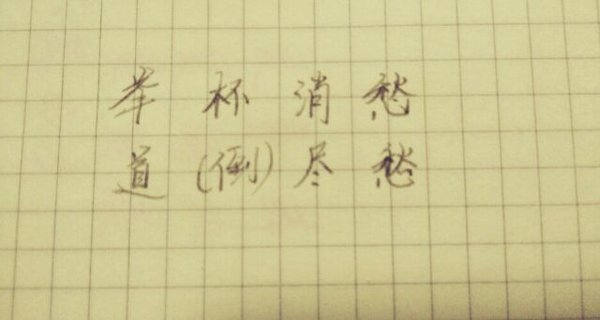 举杯消愁
道(倒)尽愁